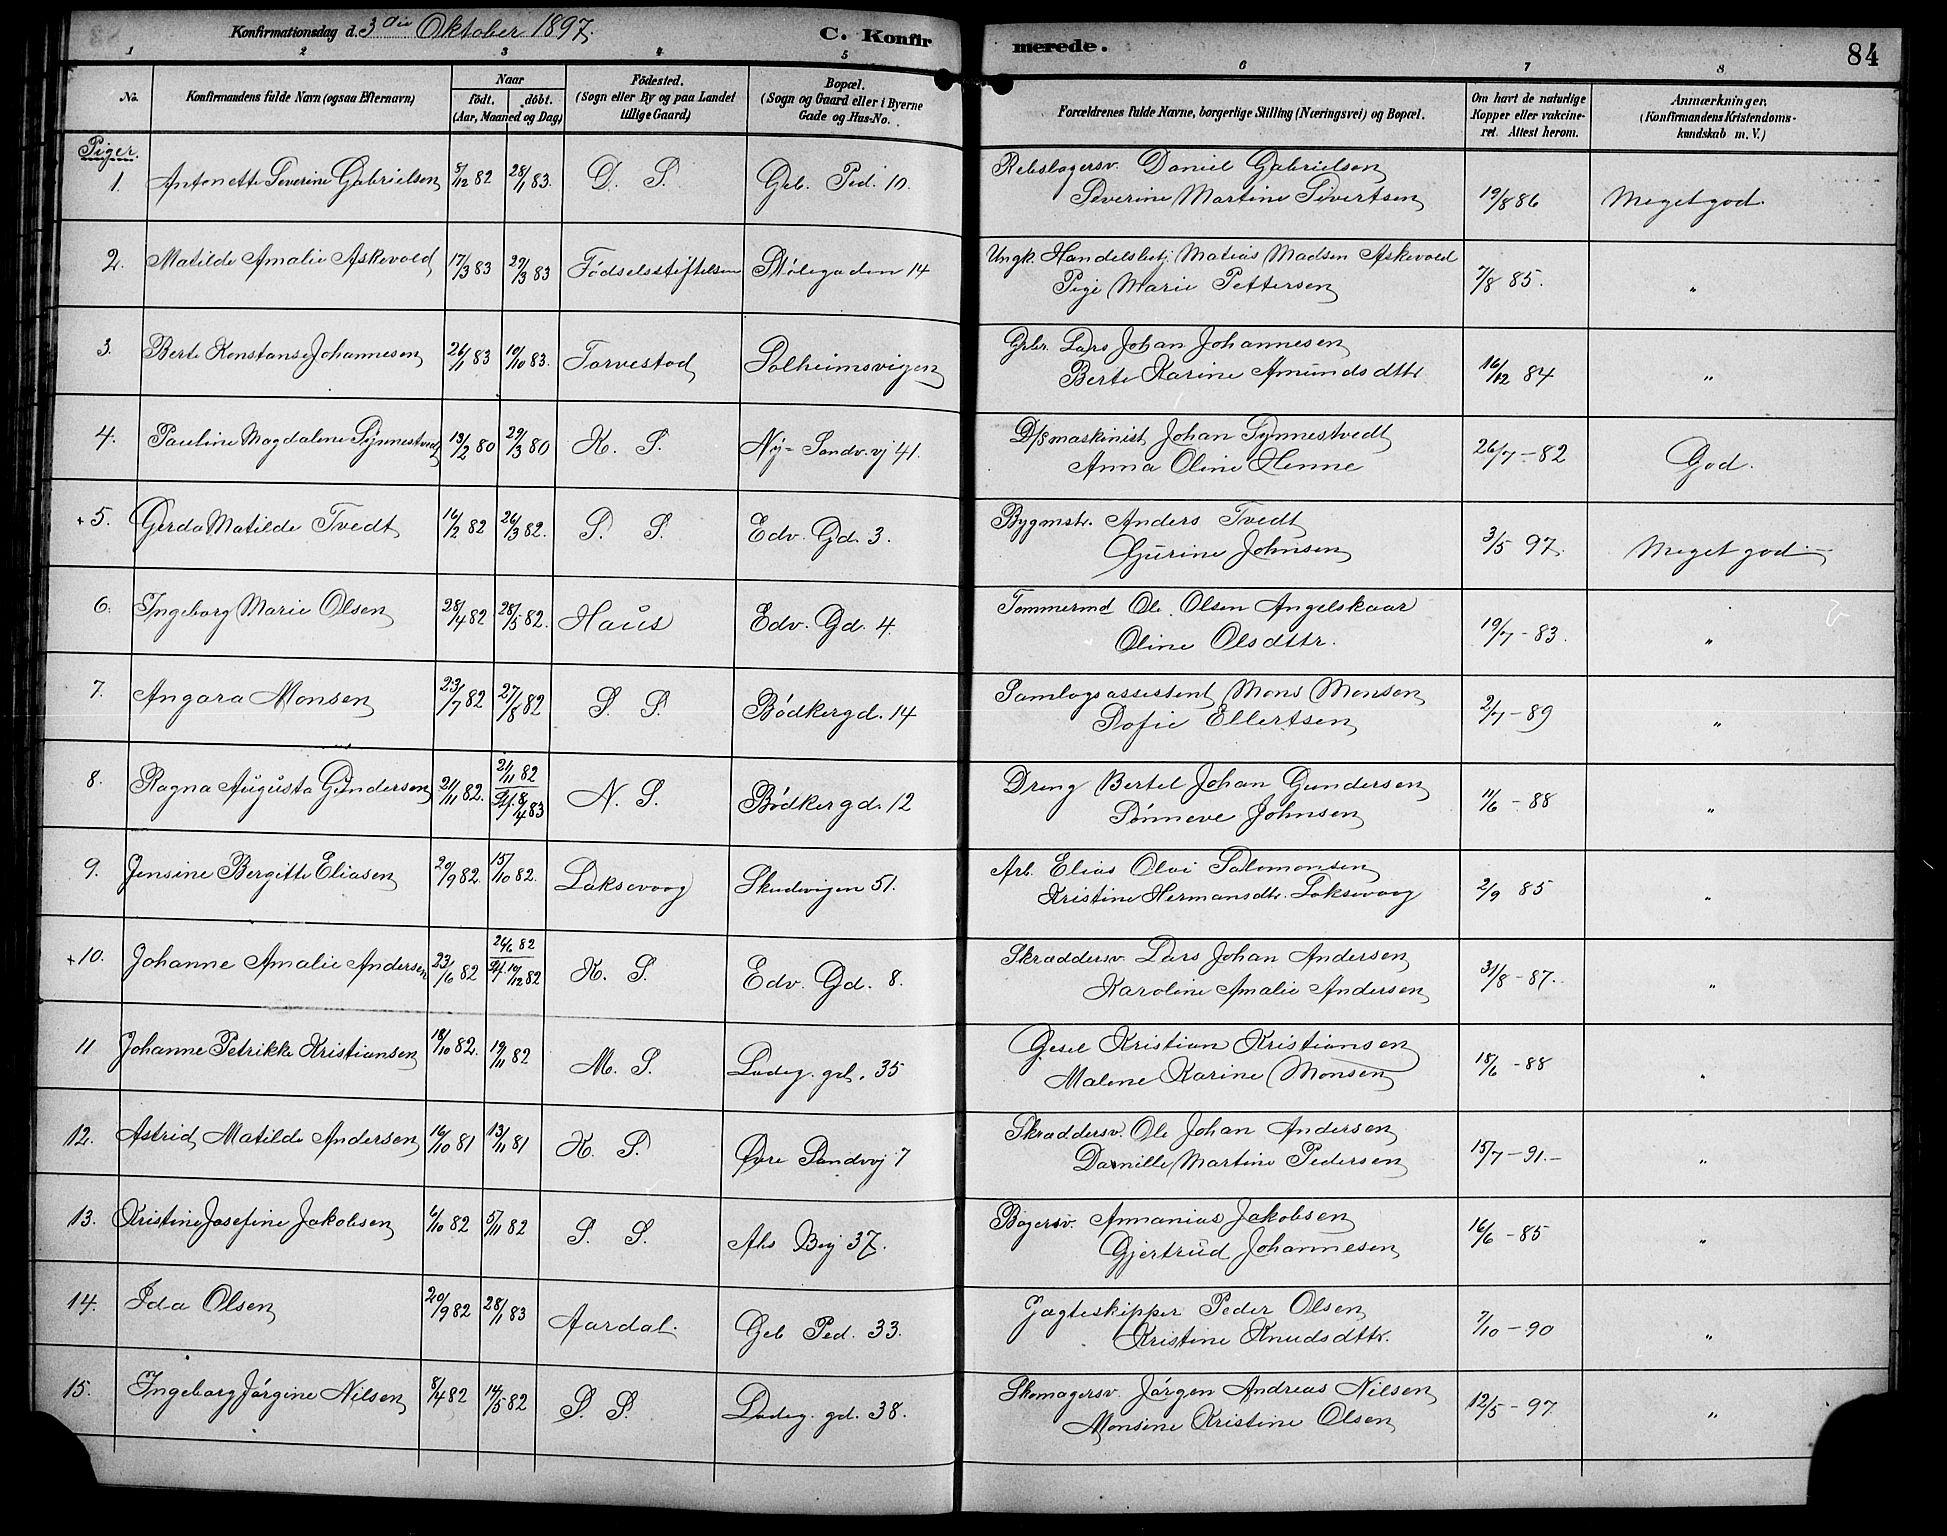 Konfirmationsdag d. 3die Oktober 1897.
C. Konfirmerede.
84
1 2 3 4 5 6 7 8
No.
Konfirmandens fulde Navn (ogsaa Efternavn)
Naar
födt. döbt.
(Aar, Maaned og Dag)
Födested.
(Sogn eller By og paa Landet
tillige Gaard)
Bopæl.
(Sogn og Gaard eller i Byerne
Gade og Hus-No.
Forældrenes fulde Navne, borgerlige Stilling (Næringsvei) og Bopæl.
Om havt de naturlige
Kopper eller vakcine-
ret. Attest herom.
Anmærkninger.
(Konfirmandens Kristendoms-
kundskab m. V.)
Piger.
1. Antonette Severine Gabrielsen 8/12 82 28/1 83. D. S. Grb. Ped. 10. Rebslagersv. Daniel Gabrielsen
Severine Martine Sivertsen 19/8 86 Meget god.
2. Matilde Amalie Askevold 17/3 83 29/3 83 Födselsstiftelsen Stölegaden 14 Ungk. Handelsbetj. Matias Madsen Askevold
Pige Marie Pettersen 7/8 85. "
3. Berte Konstanse Johannesen 26/1 83 10/10 83. Torvestad Solheimsvigen Grbr. Lars Johan Johannesen
Berte Karine Amundsdttr. 16/12 84 "
4. Pauline Magdalene Synnestvedt 13/2 80 29/3 80 K. S. Ny-Sandv.vj 41. D/s maskinist Johan Synnestvedt
Anna Oline Henne 26/7-82 God.
+5. Gerda Matilde Tvedt 16/2 82 26/3 82. S. S. Edv. Gd. 3. Bygmstr. Anders Tvedt
Gurine Johnsen 3/5 97. Meget god.
6. Ingeborg Marie Olsen 28/4 82 28/5 82. Haus Edv. Gd. 4. Tømmermd Ole Olsen Angelskaar
Oline Olsdttr. 19/7-83. "
7. Angara Monsen 23/7 82 27/8 82 S. S. Bödkergd. 14 Samlagsassistent Mons Monsen
Sofie Ellertsen 2/7-89 "
8. Ragna Augusta Gundersen 21/11 82. 21/11 82
St. 8/4 83 N. S. Bödkergd. 12 Dreng Bertel Johan Gundersen
Sönneve Johnsen 11/6-88 "
9. Jensine Bergitte Eliasen 20/9 82 15/10 82. Laksevaag Skudevigen 51. Arb. Elias Olai Salomonsen
Kristine Hermansdtr. Laksevaag 2/9 85 "
+10. Johanne Amalie Andersen 23/6 82 26/6 82
St. 10/12 82 K. S. Edv. Gd. 8. Skræddersv. Lars Johan Andersen
Karoline Amalie Andersen 31/8-87. "
11 Johanne Petrikke Kristiansen 18/10 82. 19/11 82 M. S. Ladeg. gd. 35 Gesel Kristian Kristiansen
Malene Karine Monsen 18/6-88 "
12. Astrid Matilde Andersen 16/10 81 13/11 81 K. S. Øvre Sandvj 7 Skræddersv. Ole Johan Andersen
Darnille Martine Pedersen 15/7-91.- "
13. Kristine Josefine Jakobsen 6/10 82 5/11 82 S. S. Absbej 37. Bagersv. Annanias Jakobsen
Gjertrud Johannesen 16/6-85 "
14. Ida Olsen 20/9 82 28/1 83 Aardal. Geb Ped. 33. Jægteskipper Peder Olsen
Kristine Knudsdttr. 7/10-90 "
15. Ingeborg Jörgine Nilsen 8/4 82 14/5 82 S. S. Ladeg. gd. 38. Skomagersv. Jörgen Andreas Nilsen
Monsine Kristine Olsen 12/5-97 "